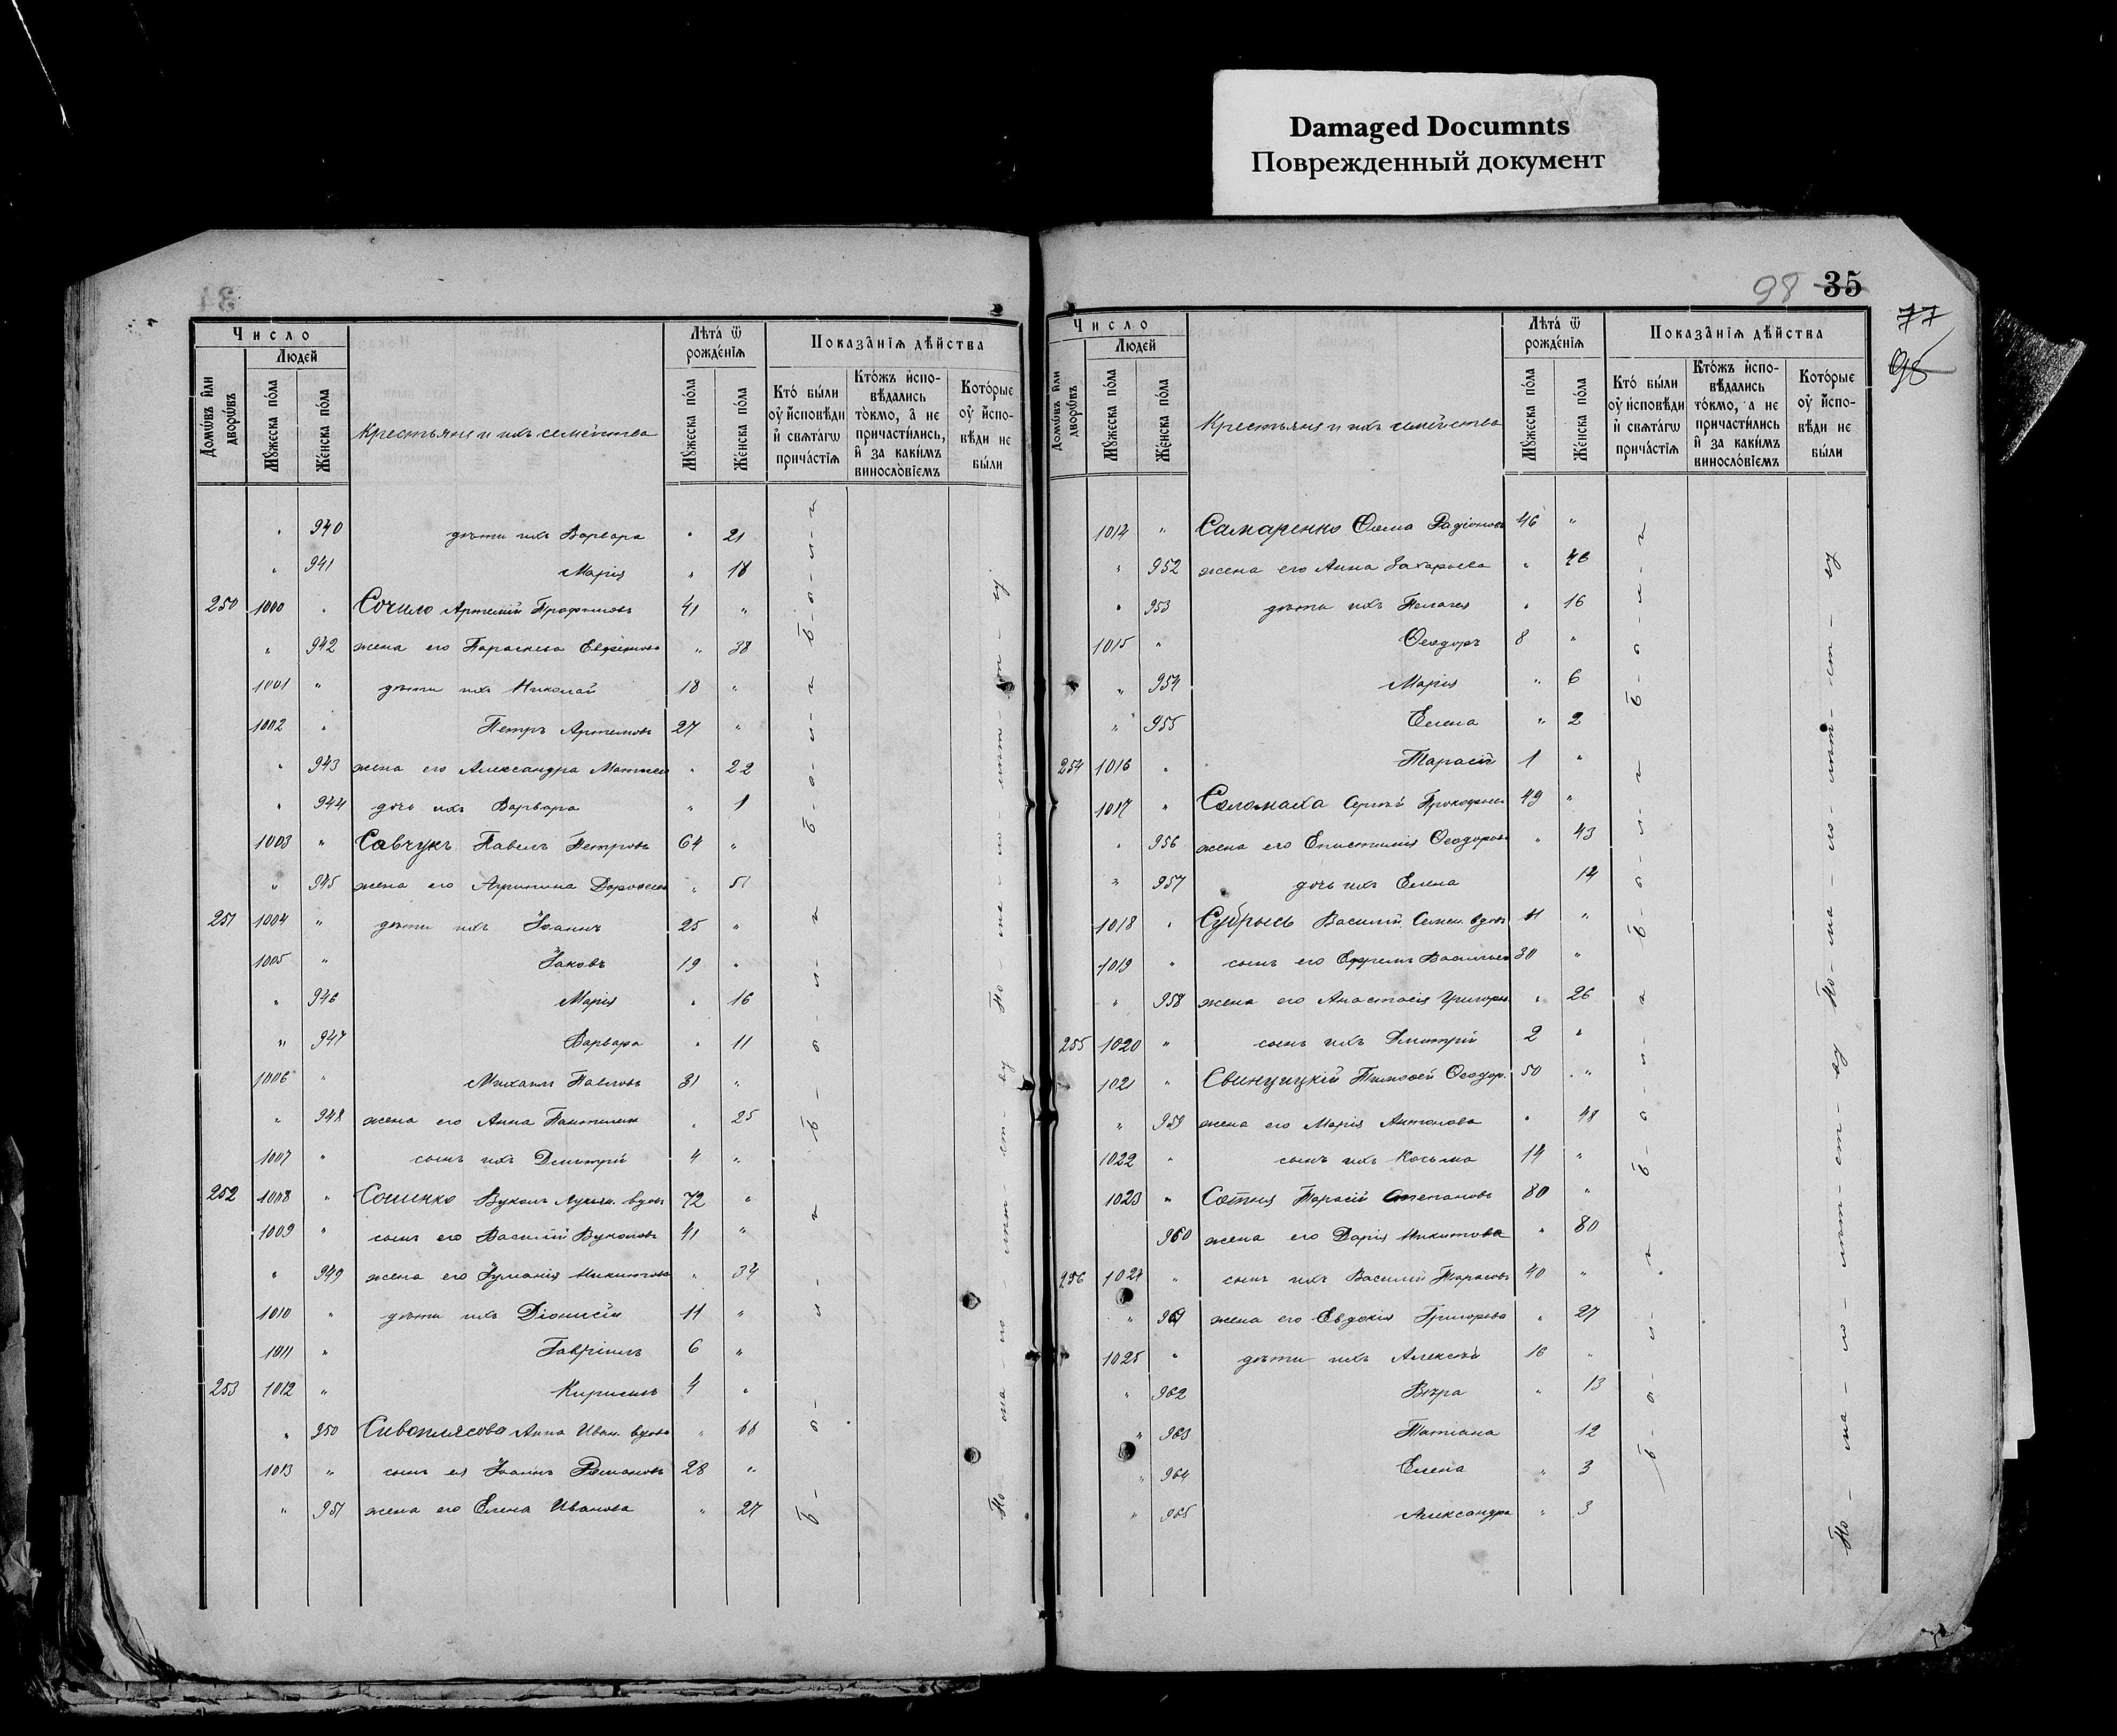 Damaged Documnts
Поврежденный документ
98 35
77
98
Число
Людей
Домѡвъ и҆лѝ дворѡ́въ
Мꙋ́жеска по́ла
Же́нска по́ла
Крестьяне и ихъ семейства
Лѣ́та ѿ рожде́нїѧ
Мꙋ́жеска по́ла
Же́нска по́ла
Показа̑нїѧ дѣ́йства
Кто̀ бы́ли оу҆ и҆сповѣди и҆ свѧта́гѡ прича́стїѧ
Кто́жъ и҆спо-вѣ́дались то́кмо, а҆ не причасти́лись, и҆ за каки́мъ винослѡ́вїемъ
Кото́рые оу҆ и҆спо-вѣди не бы́ли
" 940 дѣти ихъ Варвара " 21
" 941 Марія " 18
250 1000 " Сочило Артемій Трофимовъ 41 "
" 942 жена его Параскева Евфимова " 38
1001 " дѣти ихъ Николай 18 "
1002 " Петръ Артемовъ 27 "
" 943 жена его Александра Матѳеев " 22
" 944 дочь ихъ Варвара " 1
1003 " Савчукъ Павелъ Петровъ 64 "
" 945 жена его Агрипина Дороѳеев " 51
251 1004 " дѣти ихъ Іоаннъ 25 "
1005 " Іаковъ 19 "
" 946 Марія " 16
" 947 Варвара " 11
1006 " Михаилъ Павловъ 31 "
" 948 жена его Анна Пантелеи " 25
1007 " сынъ ихъ Дмитрій 4 "
252 1008 " Сошенко Вуколъ Лукьян. вдовъ 72 "
1009 " сынъ его Василій Вуколовъ 41 "
" 949 жена его Іуліанія Никитова " 34
1010 " дѣти ихъ Діонисій 11 "
1011 " Гавріилъ 6 "
253 1012 " Кириллъ 4 "
" 950 Сивоплясова Анна Иван. вдова " 66
1013 " сынъ ея Іоаннъ Романовъ 28 "
" 951 жена его Елена Иванова " 27
Число
Людей
Домѡвъ и҆лѝ дворѡ́въ
Мꙋ́жеска по́ла
Же́нска по́ла
Крестьяне и ихъ семейства
Лѣ́та ѿ рожде́нїѧ
Мꙋ́жеска по́ла
Же́нска по́ла
Показа̑нїѧ дѣ́йства
Кто̀ бы́ли оу҆ и҆сповѣди и҆ свѧта́гѡ прича́стїѧ
Кто́жъ и҆спо-вѣ́дались то́кмо, а҆ не причасти́лись и҆ за каки́мъ винослѡ́вїемъ
Кото́рые оу҆ и҆спо-вѣди не бы́ли
1014 " Самаренко Ѳома Радіоновъ 46 "
" 952 жена его Анна Захарьева " 46
" 953 дѣти ихъ Пелагея " 16
1015 " Ѳеодоръ 8 "
" 954 Марія " 6
" 955 Елена " 2
254 1016 " Тарасій 1 "
1017 " Соломаха Сергѣй Прокофьев 49 "
" 956 жена его Епистимія Ѳеодорова " 43
" 957 дочь ихъ Елена 12
1018 " Субрысь Василій Семен. вдовъ "
1019 " сынъ его Ефремъ Васильев 30 "
" 958 жена его Анастасія Григорьев " 26
255 1020 " сынъ ихъ Дмитрій 2 "
1021 " Свинціцкій Тимоѳей Ѳеодор. 50 "
" 959 жена его Марія Антонова " 48
1022 " сынъ ихъ Косьма 14 "
1023 " Сотния Тарасій Степановъ 80 "
960 жена его Дарія Никитова " 80
256 1024 " сынъ ихъ Василій Тарасовъ 40 "
" 961 жена его Евдокія Григорьева " 27
1025 " дѣти ихъ Алексѣй 16 "
" 962 Вѣра " 13
" 963 Татіана 12
" 964 Елена " 3
" 965 Александра " 3